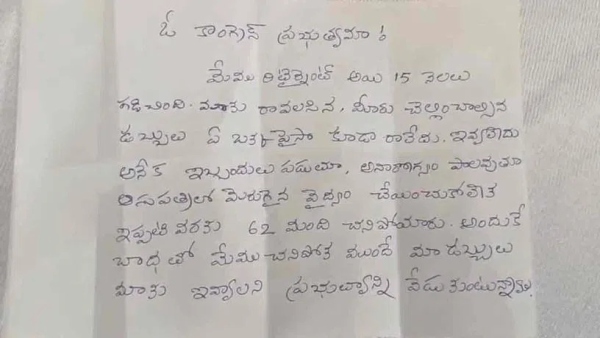 ఓ కాంగ్రెస్ ప్రభుత్వమా!
మేము రిటైర్మెంట్ అయి 15 నెలలు
గడిచింది. మాకు రావలసిన, మీరు చెల్లించాల్సిన
డబ్బులు ఏ ఒక్క పైసా కూడా రాలేదు. ఇవ్వలేదు
అనేక ఇబ్బందులు పడుతూ, అనారోగ్యం పాలవుతూ
ఆసుపత్రిలో మెరుగైన వైద్యం చేయించుకోలేక
ఇప్పటి వరకు 62 మంది చనిపోయారు. అందుకే
బాధతో మేము చనిపోక ముందే మా డబ్బులు
మాకు ఇవ్వాలని ప్రభుత్వాన్ని వేడుకుంటున్నాము.